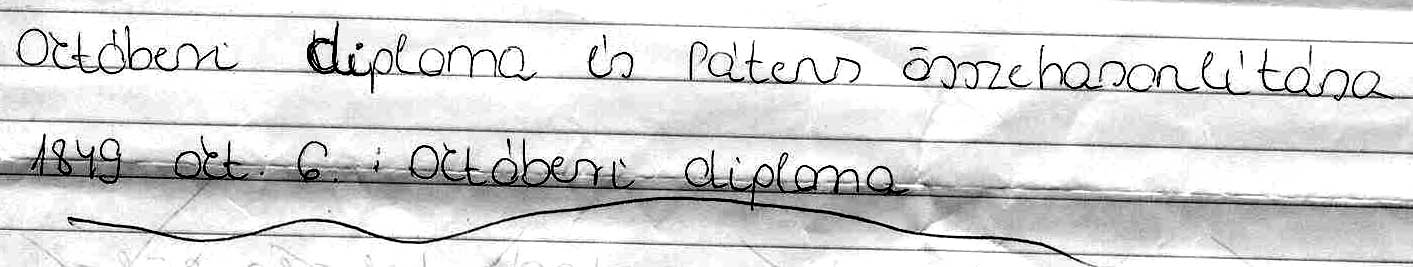 Októberi diploma és Pátens összehasonlítása
1849 okt. 6. : Októberi diploma